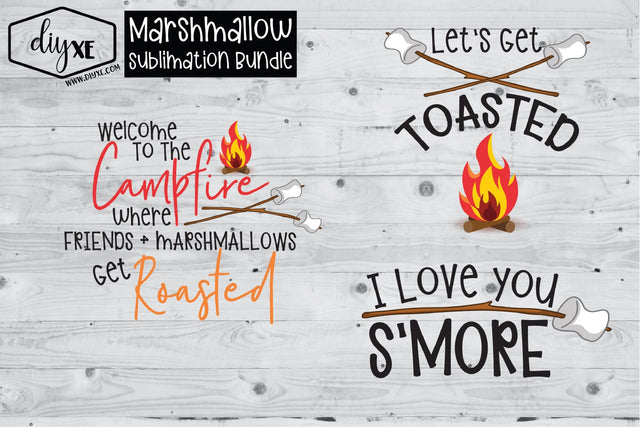 diyXE
www.DIYXE.com
Marshmallow
Sublimation Bundle
Welcome
to the
Campfire
where
Friends + Marshmallows
Get
Roasted
Let's Get
Toasted
I Love You
S'more